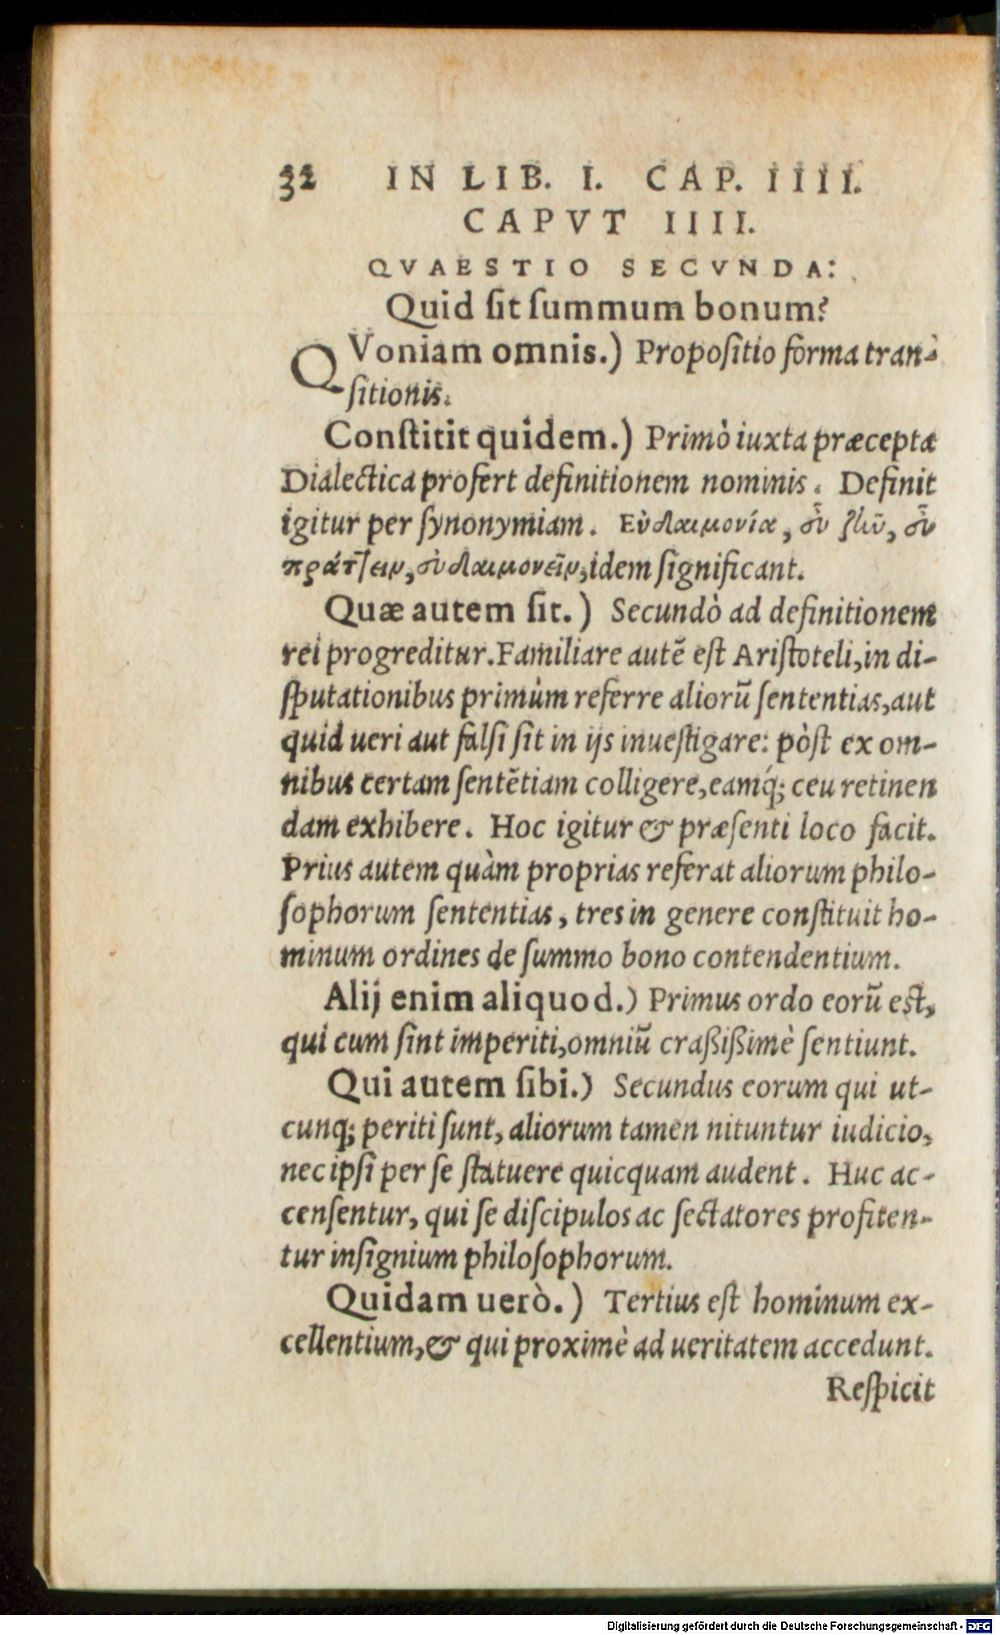 32 IN LIB. I. CAP. IIII.
CAPVT IIII.
QVAESTIO SECVNDA:
Quid ſit ſummum bonum?
QVoniam omnis.) Propoſitio forma tran-
ſitionis.
Conſtitit quidem.) Primò iuxta præcepta
Dialectica profert definitionem nominis. Definit
igitur per ſynonymiam. Εὐδαιμονία, εὖ ζῆν, εὖ
πράττειν, εὐδαιμονεῖν, idem ſignificant.
Quæ autem ſit.) Secundò ad definitionem
rei progreditur. Familiare autē eſt Ariſtoteli, in di-
ſputationibus primùm referre aliorū ſententias, aut
quid ueri aut falſi ſit in ijs inueſtigare: pòſt ex om-
nibus certam ſentētiam colligere, eamq́; ceu retinen
dam exhibere. Hoc igitur & præſenti loco facit.
Prius autem quàm proprias referat aliorum philo-
ſophorum ſententias, tres in genere conſtituit ho-
minum ordines de ſummo bono contendentium.
Alij enim aliquod.) Primus ordo eorū eſt,
qui cum ſint imperiti, omniū craßißimè ſentiunt.
Qui autem ſibi.) Secundus eorum qui ut-
cunq; periti ſunt, aliorum tamen nituntur iudicio,
nec ipſi per ſe ſtatuere quicquam audent. Huc ac-
cenſentur, qui ſe diſcipulos ac ſectatores profiten-
tur inſignium philoſophorum.
Quidam uerò.) Tertius eſt hominum ex-
cellentium, & qui proximè ad ueritatem accedunt.
Reſpicit
Digitalisierung gefördert durch die Deutsche Forschungsgemeinschaft - DFG